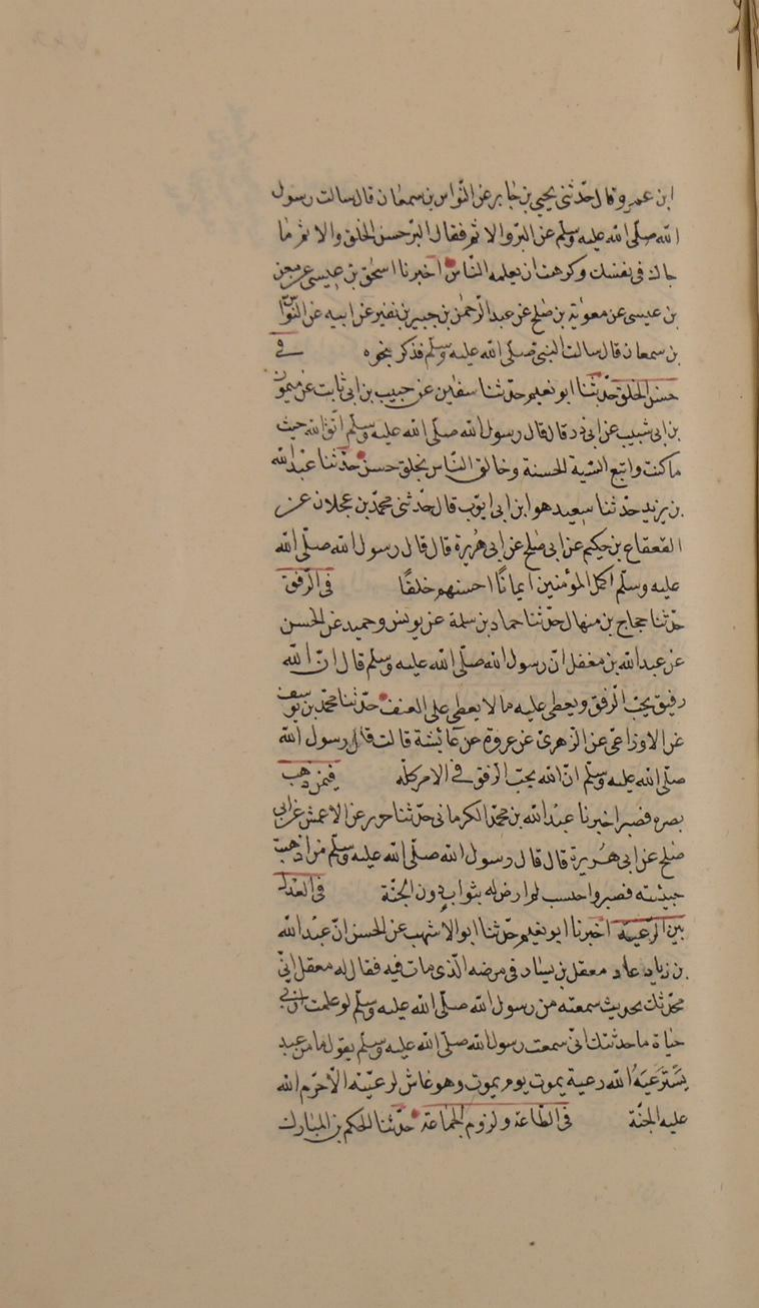 ابن عمرو قال حدثنى يحيى بن جابر عن النواس بن سمعان قال سالت رسول
الله صلى الله عليه وسلم عن البر والاثم فقال البر حسن الخلق والاثم ما
حاك فى نفسك وكرهت ان يعلمه الناس اخبرنا اسحق بن عيسى عن معن
بن عيسى عن معوية بن صلح عن عبد الرحمن بن جبير بن نفير عن ابيه عن النواس
بن سمعان قال سالت النبى صلى الله عليه وسلم فذكر نحوه في
حسن الخلق حدثنا ابو نعيم حدثنا سفين عن حبيب بن ابى ثابت عن ميمون
بن ابى شبيب عن ابى ذر قال قال رسول الله صلى الله عليه وسلم اتق الله حيث
ما كنت واتبع السية الحسنة وخالق الناس بخلق حسن حدثنا عبد الله
بن يزيد حدثنا سعيد هو ابن ابى ايوب قال حدثنى محمد بن عجلان عن
القعقاع بن حكيم عن ابى صلح عن ابى هريرة قال قال رسول الله صلى الله
عليه وسلم اكمل المؤمنين ايمانًا احسنهم خلقًا فى الرفق
حدثنا حجاج بن منهال حدثنا حماد بن سلمة عن يونس وحميد عن الحسن
عن عبد الله بن مغفل ان رسول الله صلى الله عليه وسلم قال ان الله
رفيق يحب الرفق ويعطى عليه ما لا يعطى على العنف حدثنا محمد بن يوسف
عن الاوزاعى عن الزهرى عن عروة عن عائشة قالت قال رسول الله
صلى الله عليه وسلم ان الله يحب الرفق فى الامر كله فيمن ذهب
بصره فصبر اخبرنا عبد الله بن محمد الكرمانى حدثنا جرير عن الاعمش عن ابى
صلح عن ابى هريرة قال قال رسول الله صلى الله عليه وسلم من اذهبت
حبيبته فصبر واحتسب لم ارض له بثواب دون الجنة فى العدل
بين الرعية اخبرنا ابو نعيم حدثنا ابو الاشهب عن الحسن ان عبد الله
بن زياد عاد معقل بن يسار فى مرضه الذى مات فيه فقال له معقل انى
محدثك بحديث سمعته من رسول الله صلى الله عليه وسلم لو علمت ان بى
حياة ما حدثتك انى سمعت رسول الله صلى الله عليه وسلم يقول ما من عبد
يَسْتَرعِيهُ الله رعية يموت يوم يموت وهو غاش لرعيته الا حرم الله
عليه الجنة فى الطاعة ولزوم الجماعة حدثنا الحكم بن المبارك